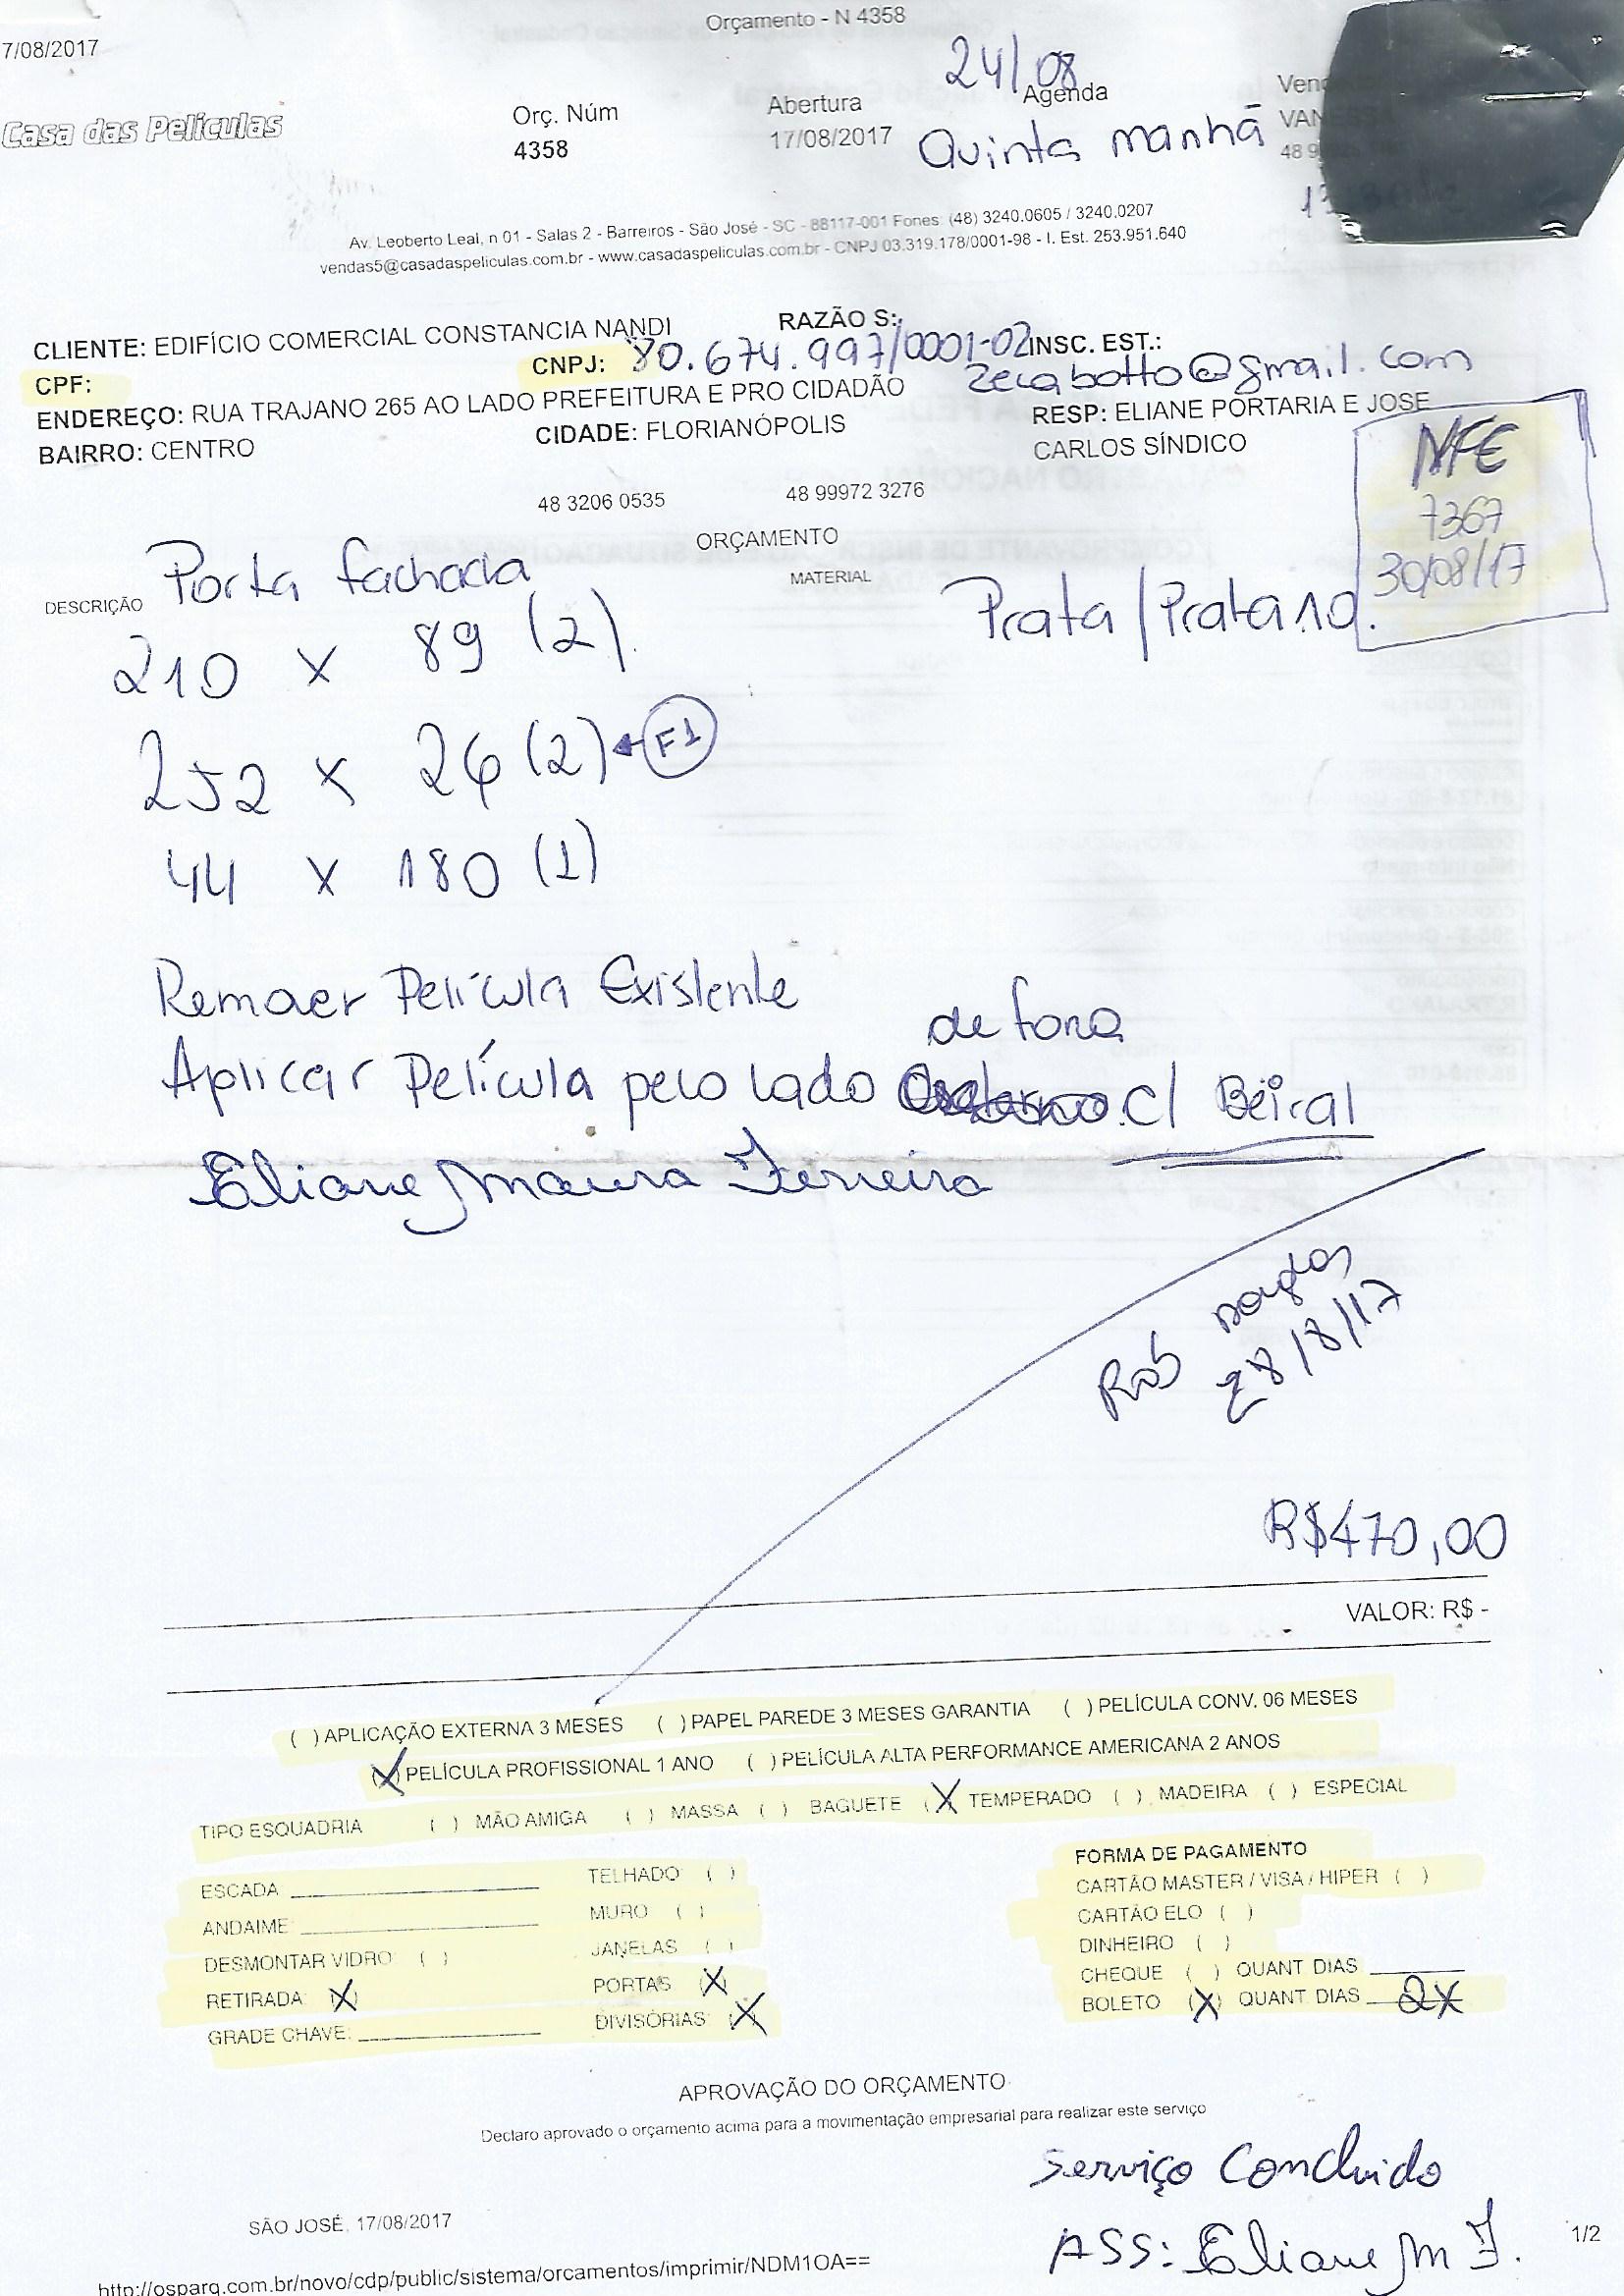 Orçamento - N 4358
7/08/2017
24/08
Casa das Películas
Orç. Núm
4358
Abertura
17/08/2017
Agenda
Quinta manhã
Av. Leoberto Leal, n 01 - Salas 2 - Barreiros - São José - SC - 88117-001 Fones: (48) 3240.0605 / 3240.0207
vendas5@casadaspeliculas.com.br - www.casadaspeliculas.com.br - CNPJ 03.319.178/0001-98 - I. Est. 253.951.640
CLIENTE: EDIFÍCIO COMERCIAL CONSTANCIA NANDI RAZÃO S:
CPF: CNPJ: 80.674.997/0001-02 INSC. EST.:
zecabotto@gmail.com
ENDEREÇO: RUA TRAJANO 265 AO LADO PREFEITURA E PRO CIDADÃO RESP: ELIANE PORTARIA E JOSE
BAIRRO: CENTRO CIDADE: FLORIANÓPOLIS CARLOS SÍNDICO
NFE
7367
30/08/17
48 3206 0535 48 99972 3276
ORÇAMENTO
DESCRIÇÃO Porta fachada MATERIAL Prata/Prata 10.
210 x 89 (2).
252 x 26 (2) F1
44 x 180 (1)
Remoer Película Existente
de fora
Aplicar Película pelo lado c/ Beiral
Eliane Maura Ferreira
28/8/17
R$470,00
VALOR: R$ -
( ) APLICAÇÃO EXTERNA 3 MESES ( ) PAPEL PAREDE 3 MESES GARANTIA ( ) PELÍCULA CONV. 06 MESES
(X) PELÍCULA PROFISSIONAL 1 ANO ( ) PELÍCULA ALTA PERFORMANCE AMERICANA 2 ANOS
TIPO ESQUADRIA ( ) MÃO AMIGA ( ) MASSA ( ) BAGUETE (X TEMPERADO ( ) MADEIRA ( ) ESPECIAL
ESCADA TELHADO: ( )
ANDAIME: MURO ( )
DESMONTAR VIDRO: ( ) JANELAS ( )
RETIRADA: (X) PORTAS (X)
GRADE CHAVE: DIVISÓRIAS: (X)
FORMA DE PAGAMENTO
CARTÃO MASTER / VISA / HIPER ( )
CARTÃO ELO ( )
DINHEIRO ( )
CHEQUE ( ) QUANT DIAS
BOLETO (X) QUANT. DIAS 2x
APROVAÇÃO DO ORÇAMENTO
Declaro aprovado o orçamento acima para a movimentação empresarial para realizar este serviço
Serviço Concluido
SÃO JOSÉ, 17/08/2017
ASS: Eliane M F.
1/2
http://osparq.com.br/novo/cdp/public/sistema/orcamentos/imprimir/NDM1OA==